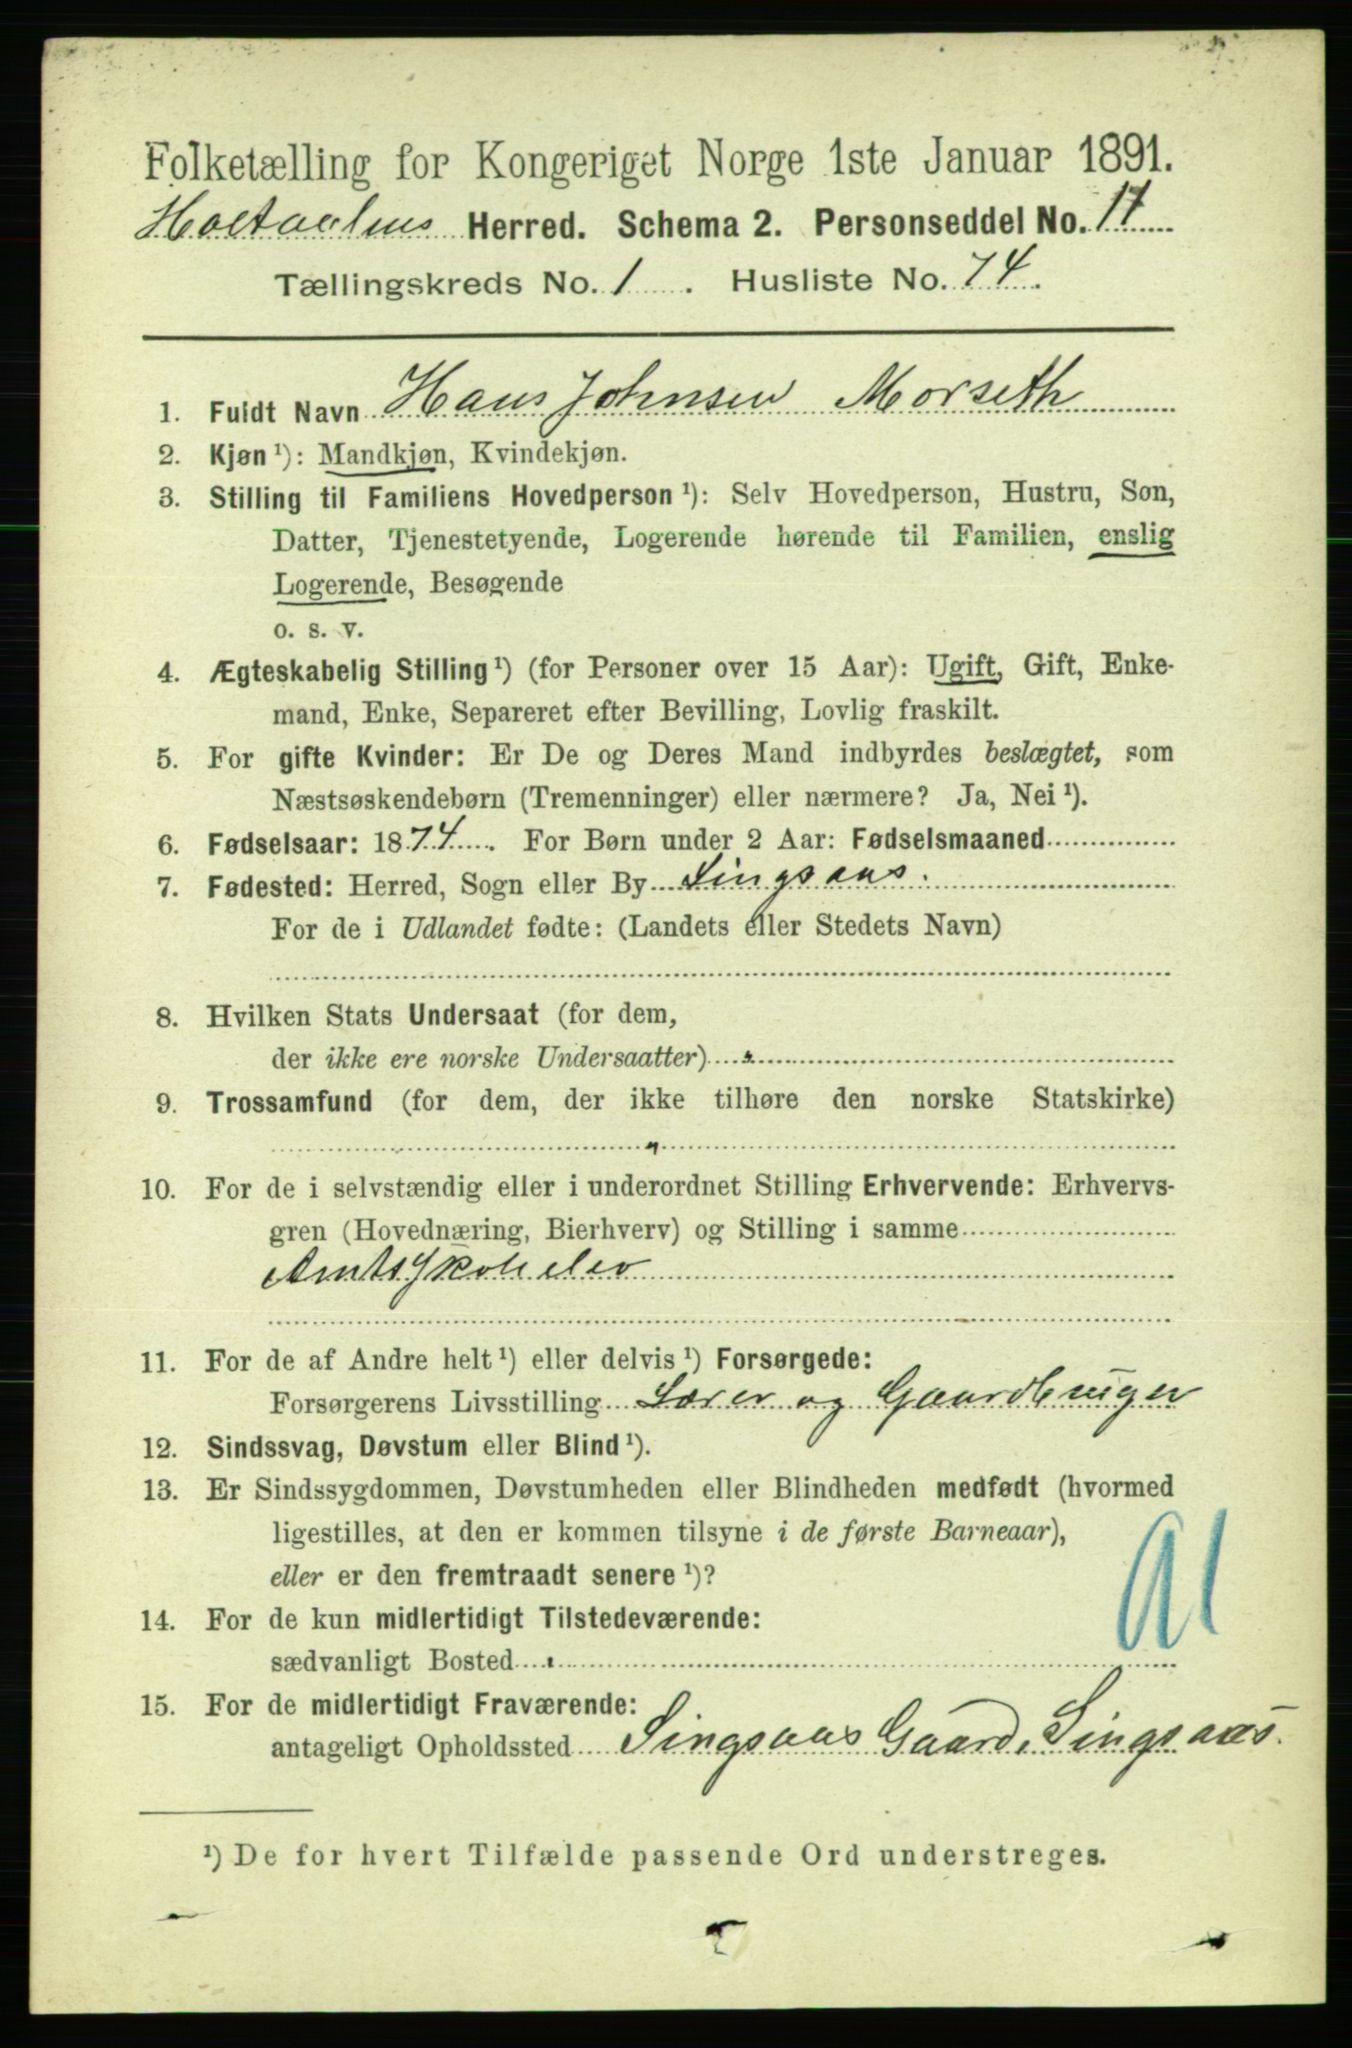 Folketælling for Kongeriget Norge 1ste Januar 1891.
Holtaalens Herred. Schema 2. Personseddel No. 17
Tællingskreds No. 1 . Husliste No. 74.
1. Fuldt Navn Hans Johnsen Morseth
2. Kjøn ¹): Mandkjøn, Kvindekjøn.
3. Stilling til Familiens Hovedperson ¹): Selv Hovedperson, Hustru, Søn,
Datter, Tjenestetyende, Logerende hørende til Familien, enslig
Logerende, Besøgende
o. s. v.
4. Ægteskabelig Stilling ¹) (for Personer over 15 Aar): Ugift, Gift, Enke-
mand, Enke, Separeret efter Bevilling, Lovlig fraskilt.
5. For gifte Kvinder: Er De og Deres Mand indbyrdes beslægtet, som
Næstsøskendebørn (Tremenninger) eller nærmere? Ja, Nei ¹).
6. Fødselsaar: 1874. For Børn under 2 Aar: Fødselsmaaned
7. Fødested: Herred, Sogn eller By Singsaas.
For de i Udlandet fødte: (Landets eller Stedets Navn)
8. Hvilken Stats Undersaat (for dem,
der ikke ere norske Undersaatter) "
9. Trossamfund (for dem, der ikke tilhøre den norske Statskirke)
"
10. For de i selvstændig eller i underordnet Stilling Erhvervende: Erhvervs-
gren (Hovednæring, Bierhverv) og Stilling i samme
Amtsskoleelev
11. For de af Andre helt ¹) eller delvis ¹) Forsørgede:
Forsørgerens Livsstilling Lærer og Gaardbruger
12. Sindssvag, Døvstum eller Blind ¹).
13. Er Sindssygdommen, Døvstumheden eller Blindheden medfødt (hvormed
ligestilles, at den er kommen tilsyne i de første Barneaar),
eller er den fremtraadt senere ¹)?
14. For de kun midlertidigt Tilstedeværende:
sædvanligt Bosted
15. For de midlertidigt Fraværende:
antageligt Opholdssted Singsaas Gaard, Singsaas.
¹) De for hvert Tilfælde passende Ord understreges.